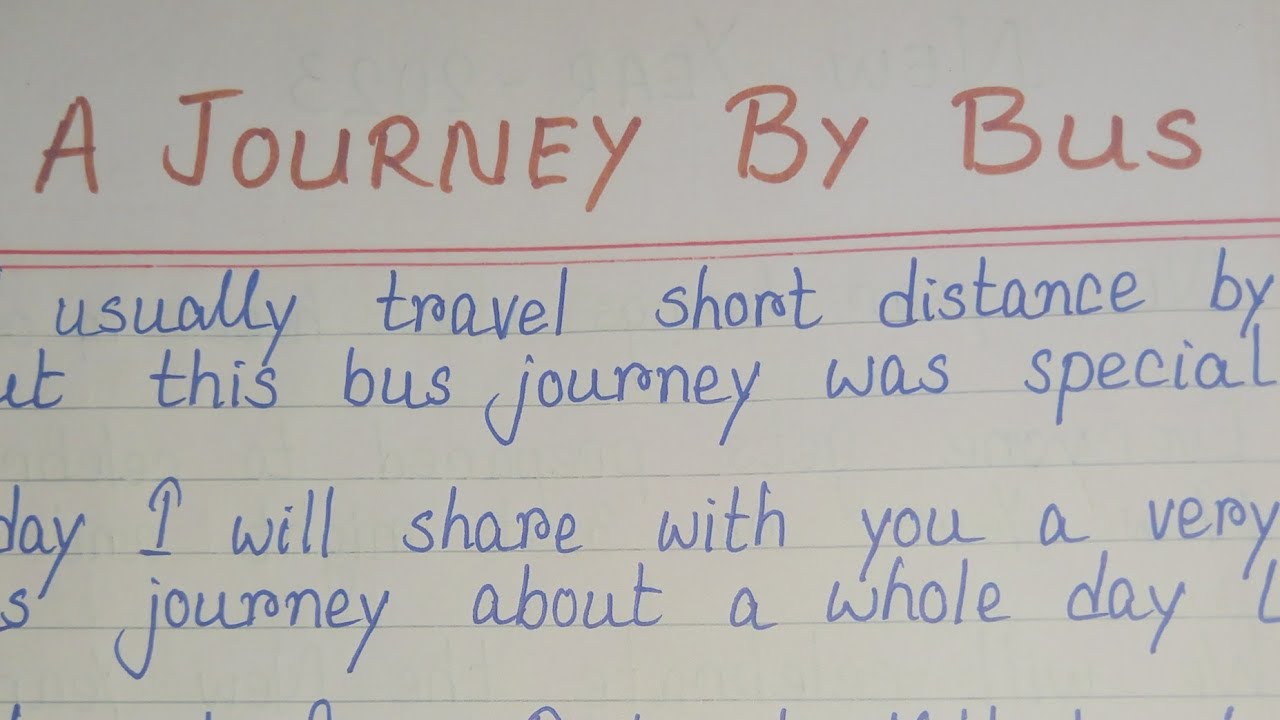 A JOURNEY BY BUS
usually travel short distance by
ut this bus journey was special
day I will share with you a very
s journey about a whole day